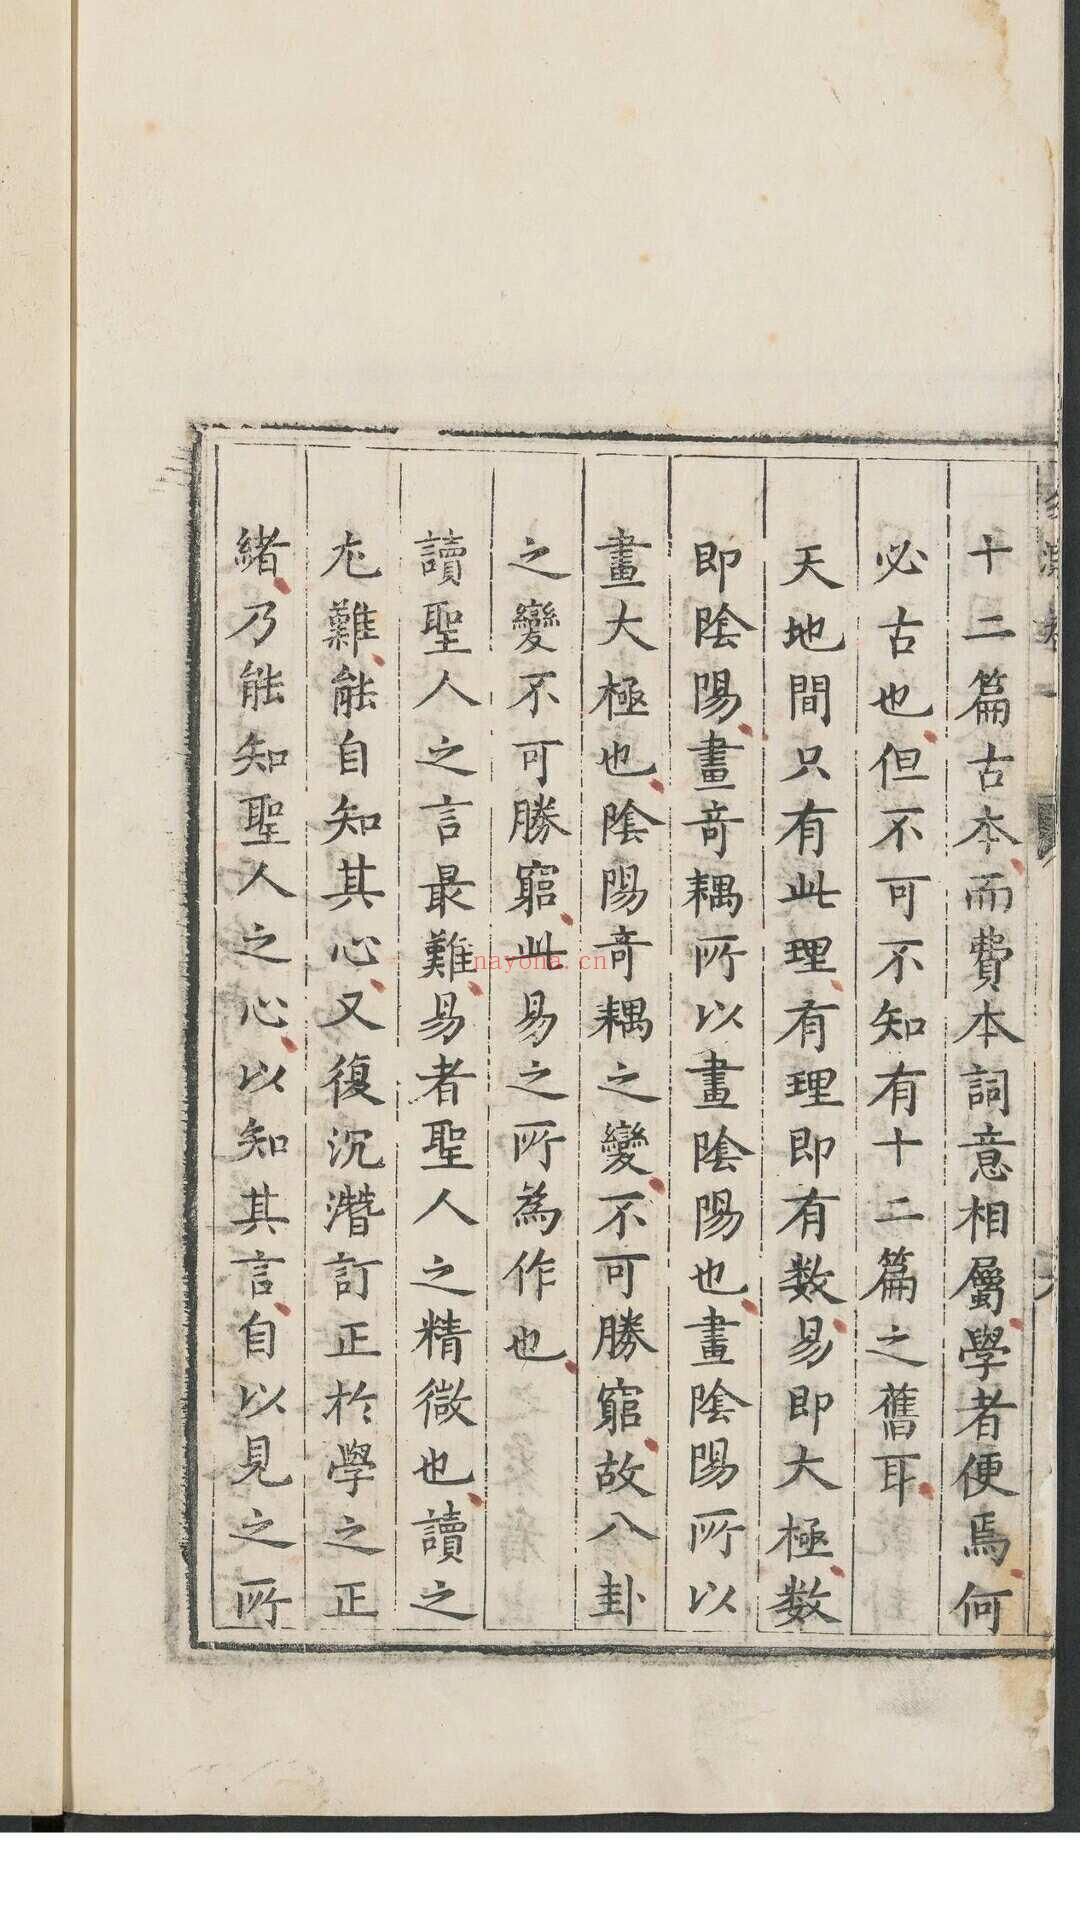 十二篇古本而費本詞意相屬學者便焉何
必古也但不可不知有十二篇之舊耳
天地間只有此理有理即有数易即大極数
即陰陽畫竒耦所以畫陰陽也畫陰陽所以
畫大極也陰陽竒耦之變不可勝窮故八卦
之變不可勝窮此易之所為作也
讀聖人之言最難易者聖人之精微也讀之
尤難能自知其心又復沉潛訂正於學之正
緒乃能知聖人之心以知其言自以見之所
nayona.cn